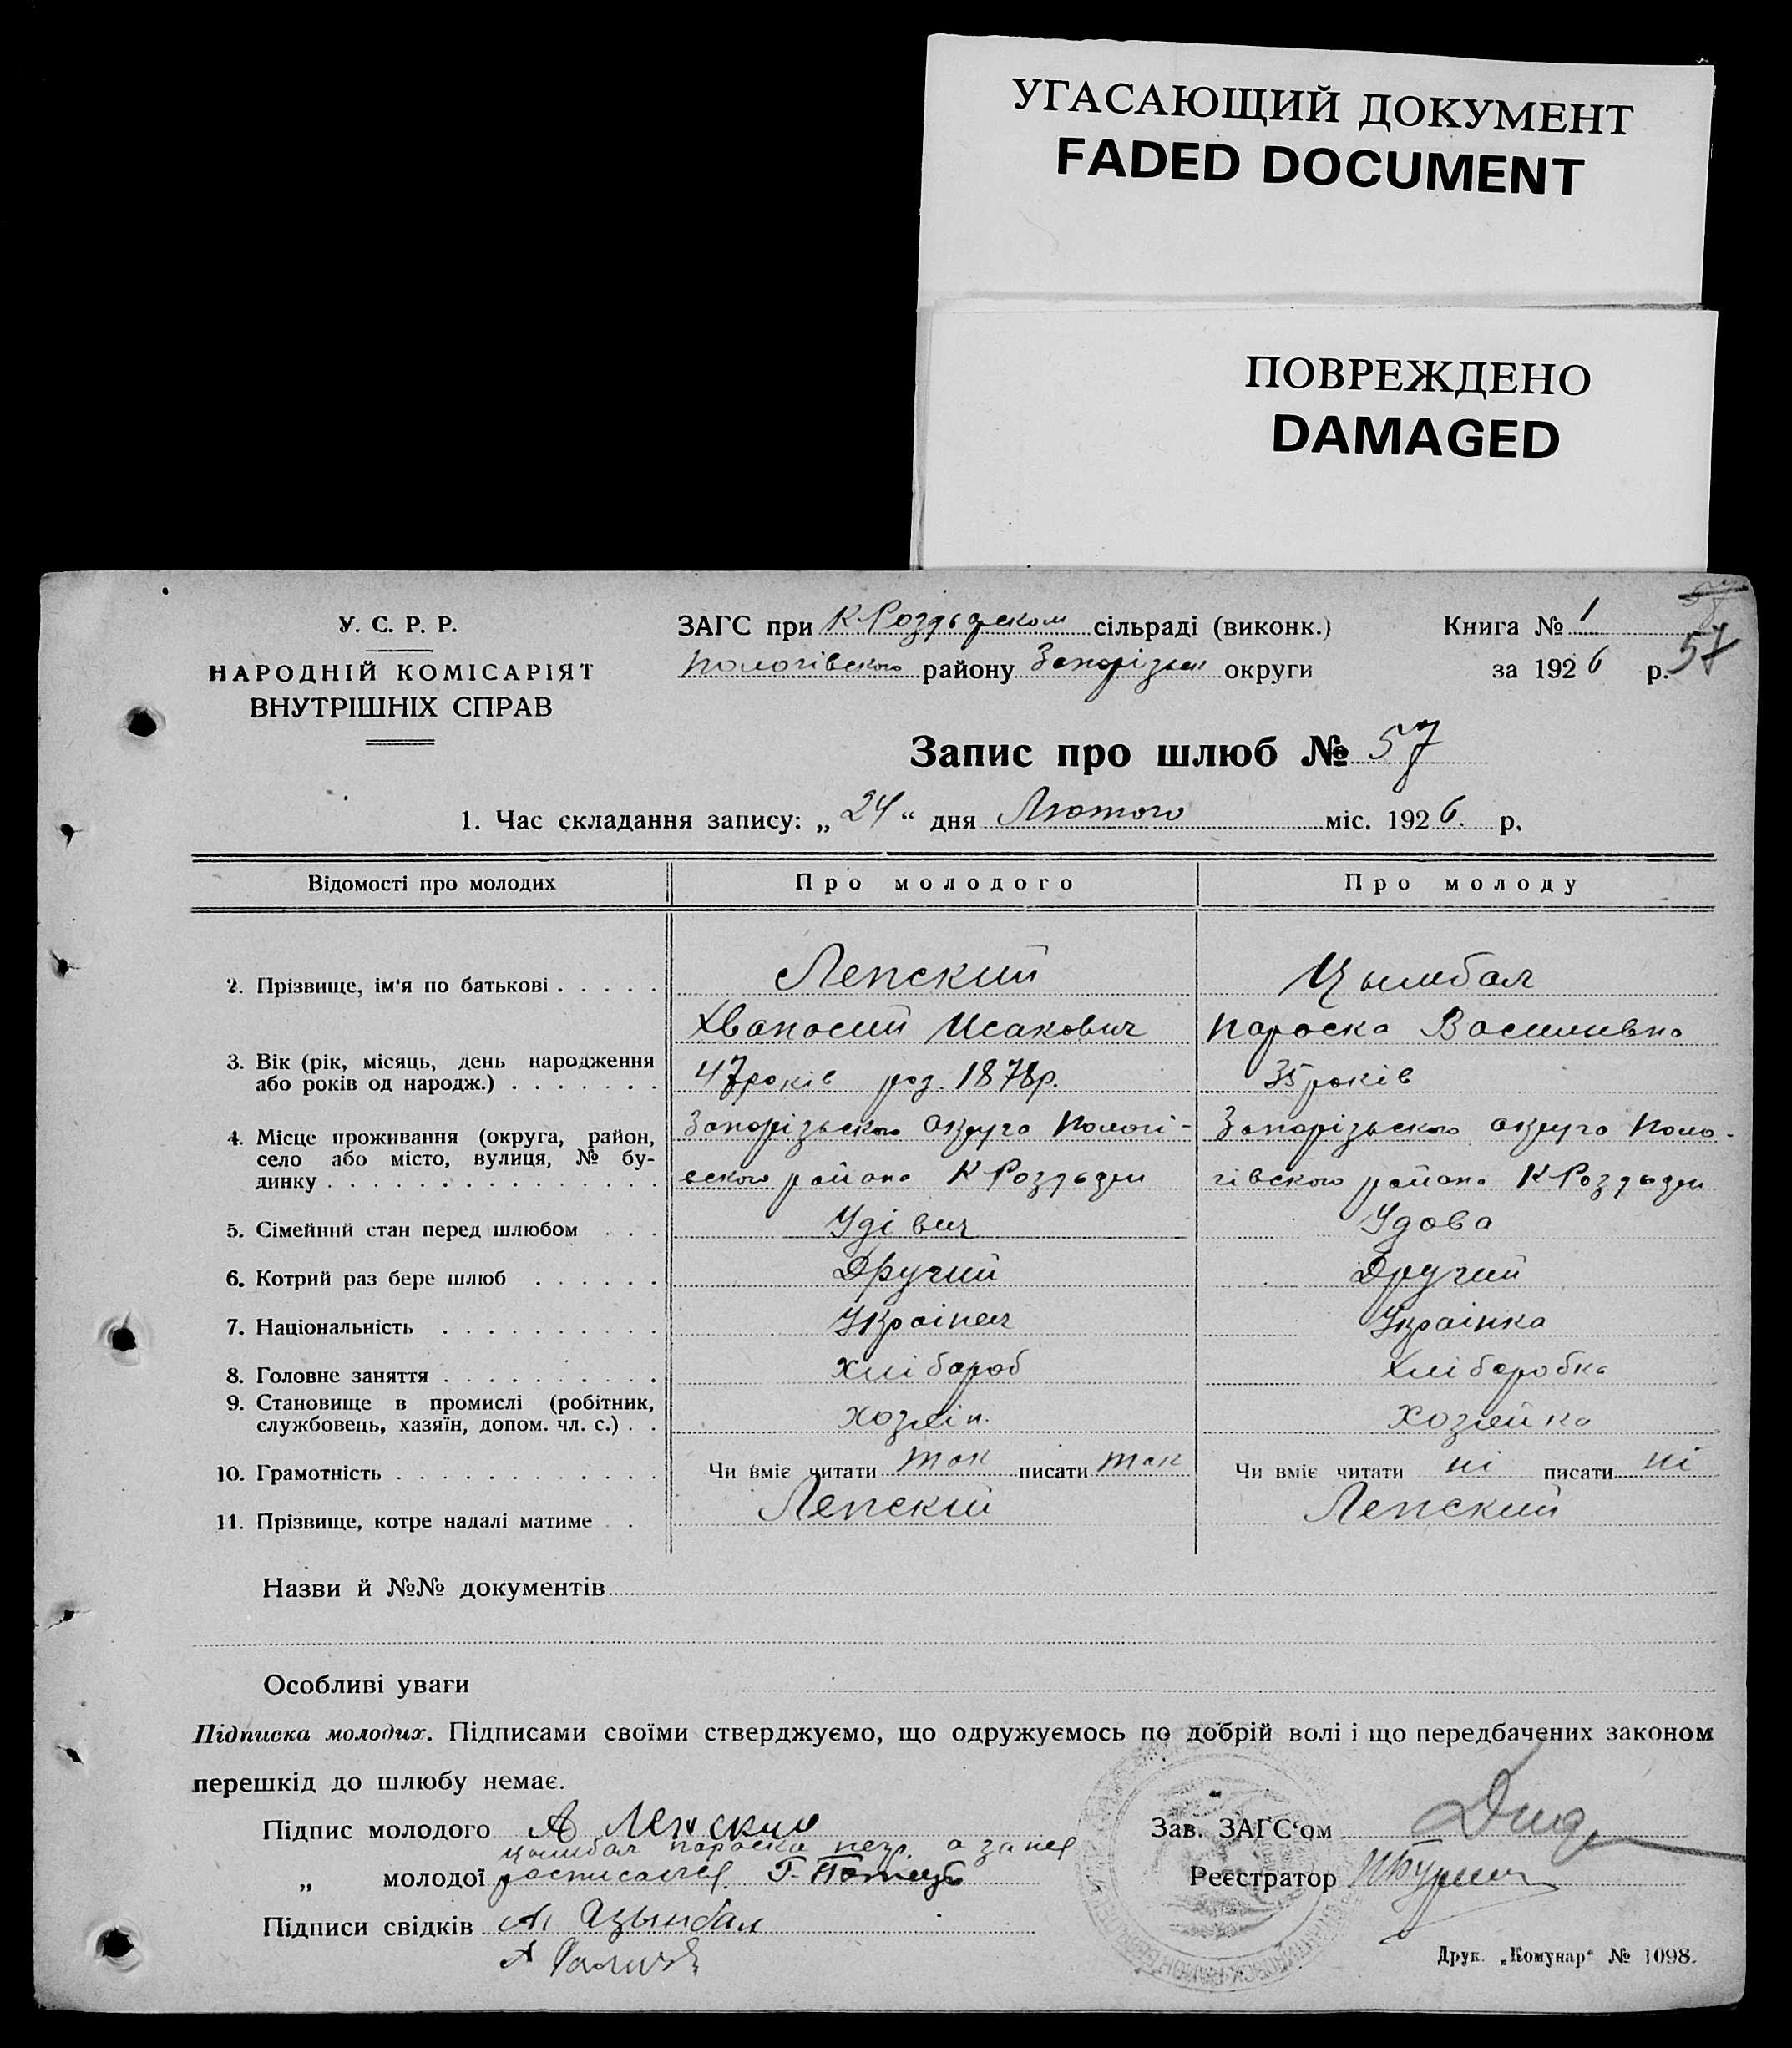 УГАСАЮЩИЙ ДОКУМЕНТ
FADED DOCUMENT
ПОВРЕЖДЕНО
DAMAGED
У. С. Р. Р.
НАРОДНІЙ КОМІСАРІЯТ
ВНУТРІШНІХ СПРАВ
ЗАГС при К Роздорском сільраді (виконк.)
Пологівского району Запорізьк округи
Книга № 1
за 1926 р.
57
Запис про шлюб № 57
1. Час складання запису: „24“ дня Лютого міс. 1926. р.
Відомості про молодих Про молодого Про молоду
2. Прізвище, ім'я по батькові Лепский Цымбал
Хванасий Исакович Параска Василивна
3. Вік (рік, місяць, день народження
або років од народж.) 47 років род. 1878р. 35 років
4. Місце проживання (округа, район,
село або місто, вулиця, № бу-
динку
Запорізьского округа Пологі-
вского района К Роздори
Запорізьского округа Поло-
гівского района К Роздори
5. Сімейний стан перед шлюбом Удівич Удова
6. Котрий раз бере шлюб Другий Другий
7. Національність Українец Українка
8. Головне заняття Хлібороб Хліборобка
9. Становище в промислі (робітник,
службовець, хазяїн, допом. чл. с.) Хозяін. Хозяйка
10. Грамотність Чи вміє читати так писати так Чи вміє читати ні писати ні
11. Прізвище, котре надалі матиме Лепский Лепский
Назви й №№ документів
Особливі уваги
Підписка молодих. Підписами своїми стверджуємо, що одружуємось по добрій волі і що передбачених законом
перешкід до шлюбу немає.
Підпис молодого А Лепский
Цымбал Параска негр. а за нея
„ молодої росписался Г.
Підписи свідків Цымбал
А
Зав. ЗАГС'ом
Реєстратор
Друк. „Комунар“ № 1098.